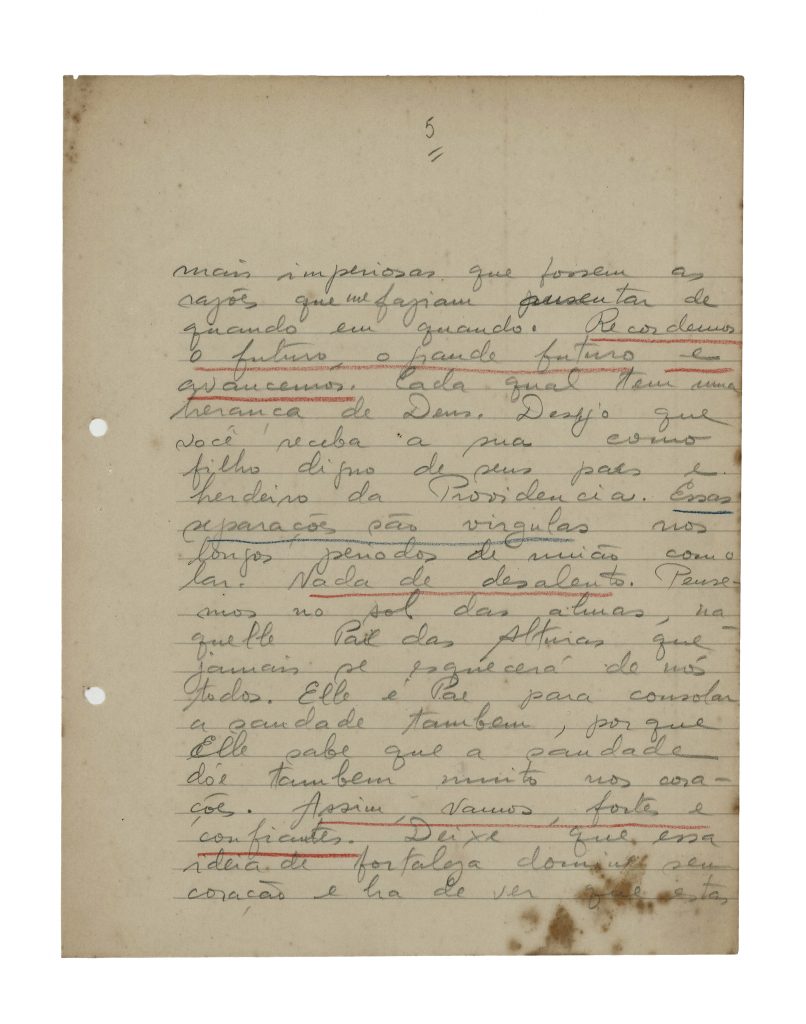 5
mais imperiosas que fossem as
razões que me faziam ausentar de
quando em quando. Recordemos
o futuro, o grande futuro e
avancemos. Cada qual tem uma
herança de Deus. Desejo que
você receba a sua como
filho digno de seus paes e
herdeiro da Providencia. Essas
separações são virgulas nos
longos periodos de união com o
lar. Nada de desalento. Pense-
mos no sol das almas, na
quelle Pae das Alturas que
jamais se esquecerá de nós
todos. Elle é Pae para consolar
a saudade tambem, porque
Elle sabe que a saudade
dóe tambem muito nos cora-
ções. Assim, vamos, fortes e
confiantes. Deixe que essa
ideia de fortaleza domine seu
coração e ha de ver que estas